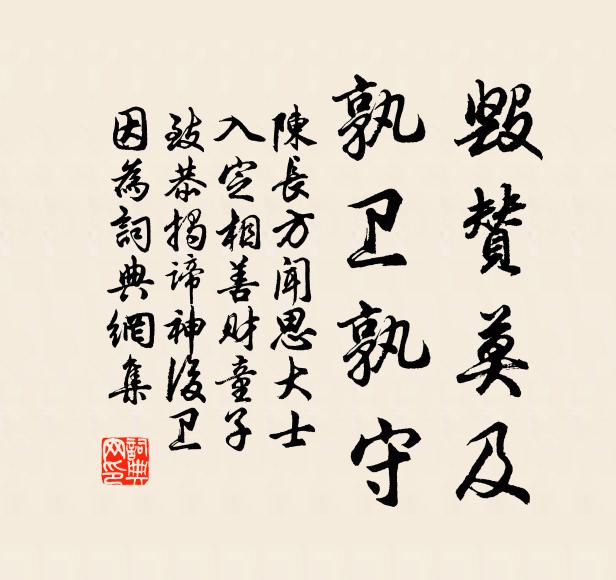 毀贊莫及
孰卫孰守
陳長方闻思大士
入定相善财童子
致恭揭谛神後卫
因為詞典網集
詞典网印